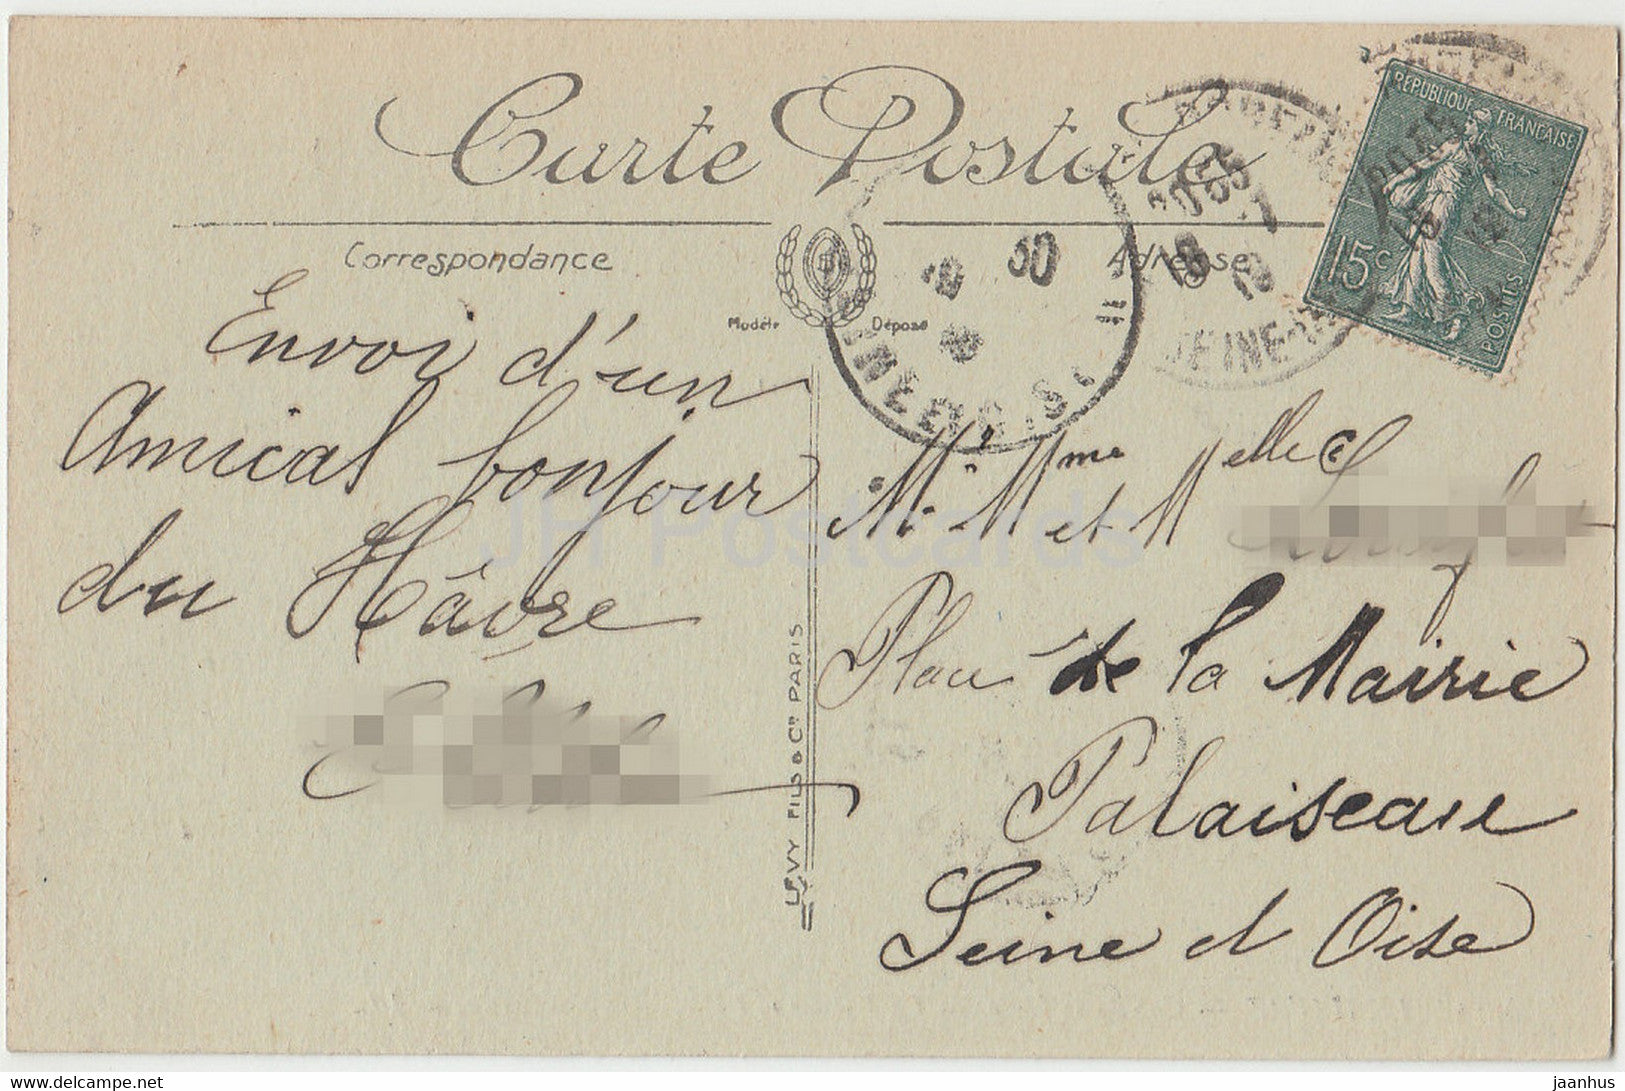 Carte Postale
Correspondance
Adresse
Modèle Déposé
RÉPUBLIQUE FRANÇAISE
15c
POSTES
Envoi d'un
Amical bonjour
du Hâvre
Mr. Mme et Melle
Place de la Mairie
Palaiseau
Seine et Oise
LEVY FILS & Cie PARIS
JH Postcards
www.delcampe.net
jaanhus